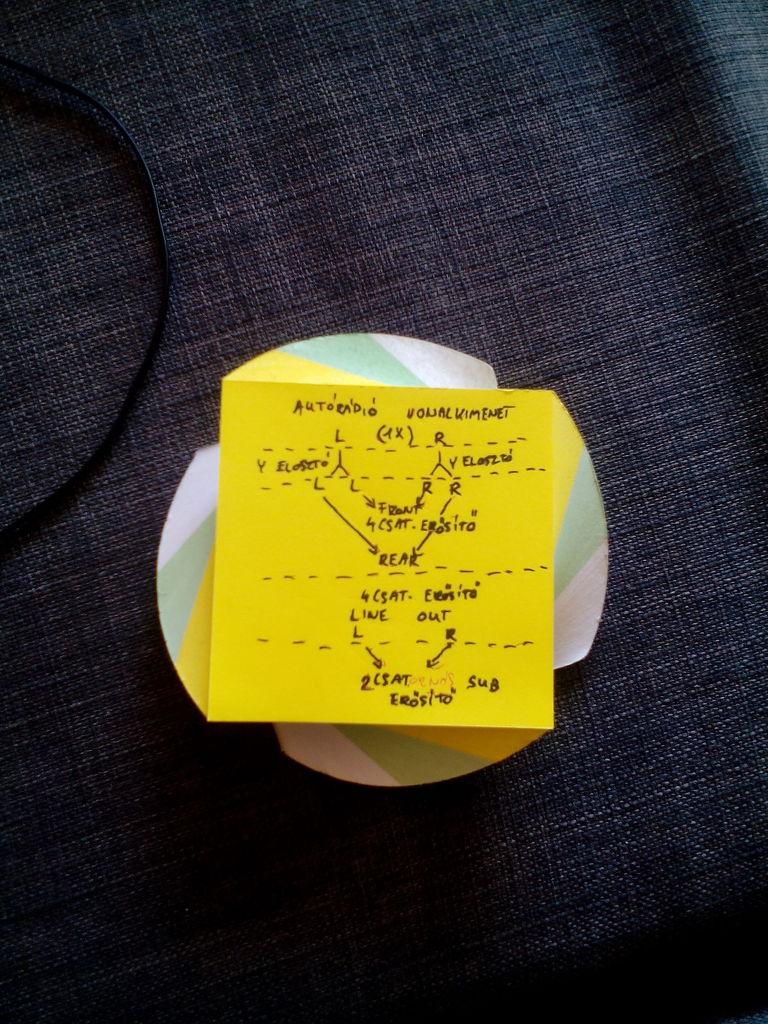 AUTÓRÁDIÓ VONALKIMENET
L (1X) R
Y ELOSZTÓ Y ELOSZTÓ
L L R R
FRONT
4CSAT. ERŐSÍTŐ
REAR
4CSAT. ERŐSÍTŐ
LINE OUT
L R
2CSATORNÁS SUB
ERŐSÍTŐ